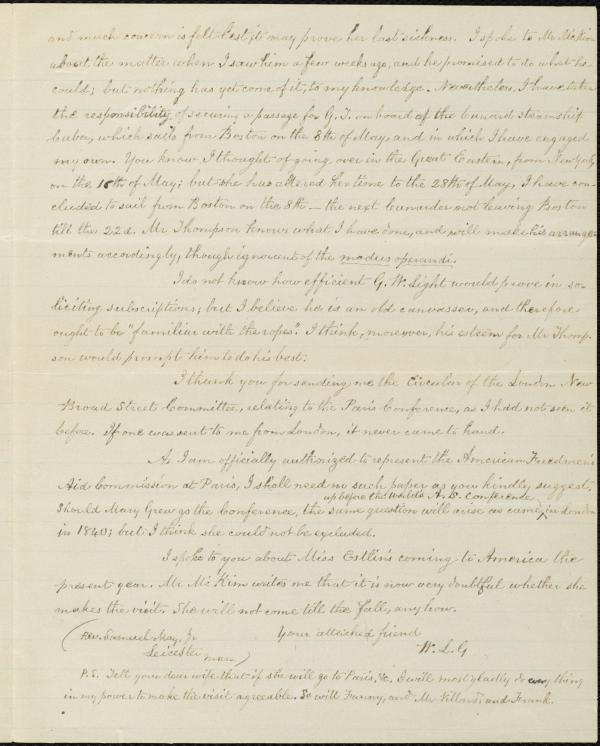 and much concern is felt lest it may prove her last sickness. I spoke to Mr McKim
about the matter when I saw him a few weeks ago, and he promised to do what he
could; but nothing has yet come of it, to my knowledge. Nevertheless, I have taken
the responsibility of securing a passage for G. T. on board of the Cunard steamship
Cuba, which sails from Boston on the 8th of May, and in which I have engaged
my own. You know I thought of going over in the Great Eastern, from New York,
on the 15th of May; but she has altered her time to the 28th of May, I have con-
cluded to sail from Boston on the 8th — the next Cunarder not leaving Boston
till the 22d. Mr Thompson knows what I have done, and will make his arrange-
ments accordingly, though ignorant of the modus operandi.
I do not know how efficient G. W. Light would prove in so-
liciting subscriptions; but I believe he is an old canvasser, and therefore
ought to be "familiar with the ropes." I think, moreover, his esteem for Mr Thomp-
son would prompt him to do his best.
I thank you for sending me the Circular of the London New
Broad Street Committee, relating to the Paris Conference, as I had not seen it
before. If one was sent to me from London, it never came to hand.
As I am officially authorized to represent the American Freedmen's
Aid Commission at Paris, I shall need no such paper as you kindly suggest.
up before the World's A. S. Conference
Should Mary Grew go to the Conference, the same question will arise as came ^ in London
in 1840; but I think she could not be excluded.
I spoke to you about Miss Estlin's coming to America the
present year. Mr McKim writes me that it is now very doubtful whether she
makes the visit. She will not come till the fall, any how.
(Rev. Samuel May, Jr Your attached friend
Leicester Mass) W. L. G
P.S. Tell your dear wife that if she will go to Paris, &c. I will most gladly do every thing
in my power to make the visit agreeable. So will Fanny, and Mr Villard, and Frank.